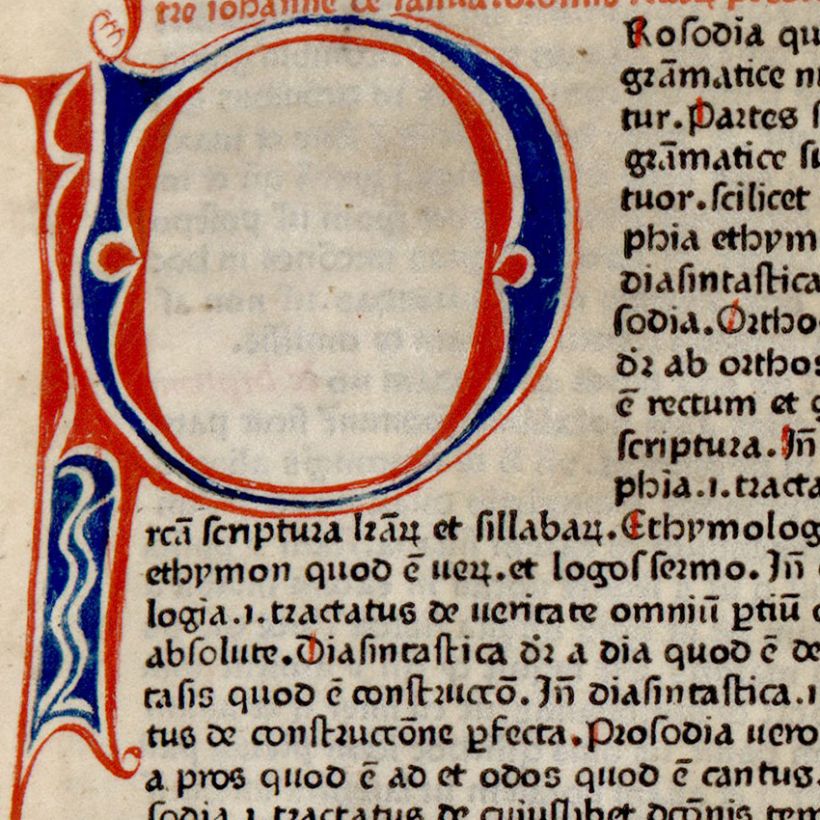 tre iohanne de ianua.
Rosodia qu
grāmatice n
tur. Partes s
grāmatice su
tuor. scilicet
phia ethym
diasintastica
sodia. Ortho
dr̄ ab orthos
ē rectum et g
scriptura. Jn̄
phia .i. tracta
rcā scriptura lr̄aꝝ et sillabaꝝ. Ethymolog
ethymon quod ē ueꝝ. et logos sermo. Jn̄
logia .i. tractatus de ueritate omniū ꝑtiū
absolute. Diasintastica dr̄ a dia quod ē de
tasis quod ē constructō. Jn̄ diasintastica .i
tus de constructōne ꝑfecta. Prosodia uero
a pros quod ē ad et odos quod ē cantus.
sodia .i. tractatus de cuiuslibet dcōnis tem